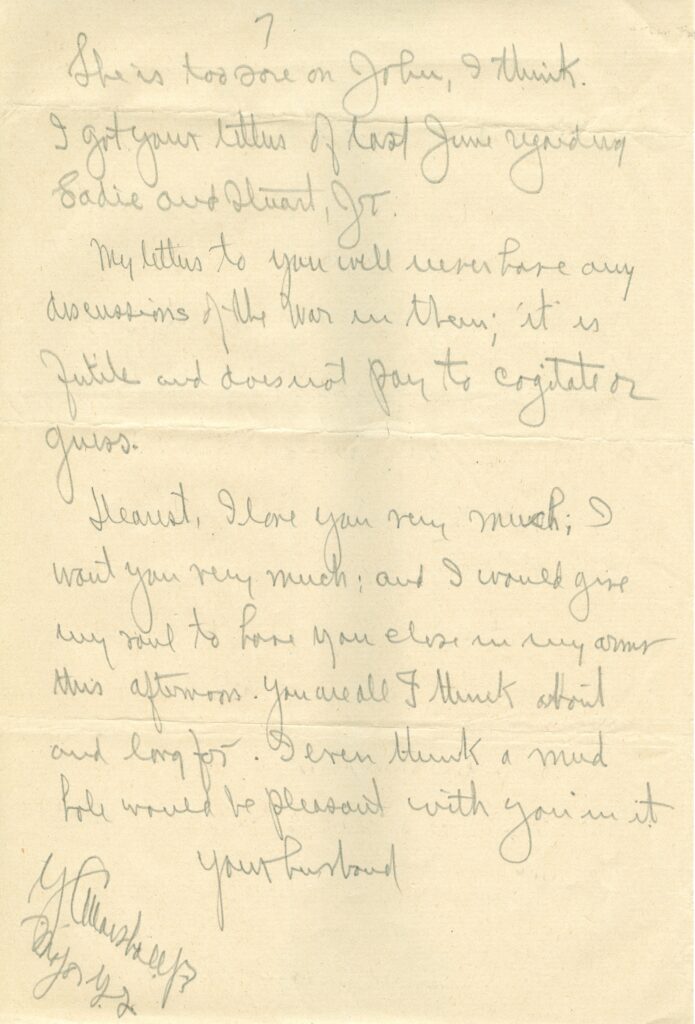 7
She is too sore on John, I think.
I got your letters of last June regarding
Eadie and Stuart, Jr.
My letters to you will never have any
discussions of the War in them; it is
futile and does not pay to cogitate or
guess.
Dearest, I love you very much; I
want you very much; and I would give
my soul to have you close in my arms
this afternoon. You are all I think about
and long for. I even think a mud
hole would be pleasant with you in it
your husband
Marshall Jr
Major